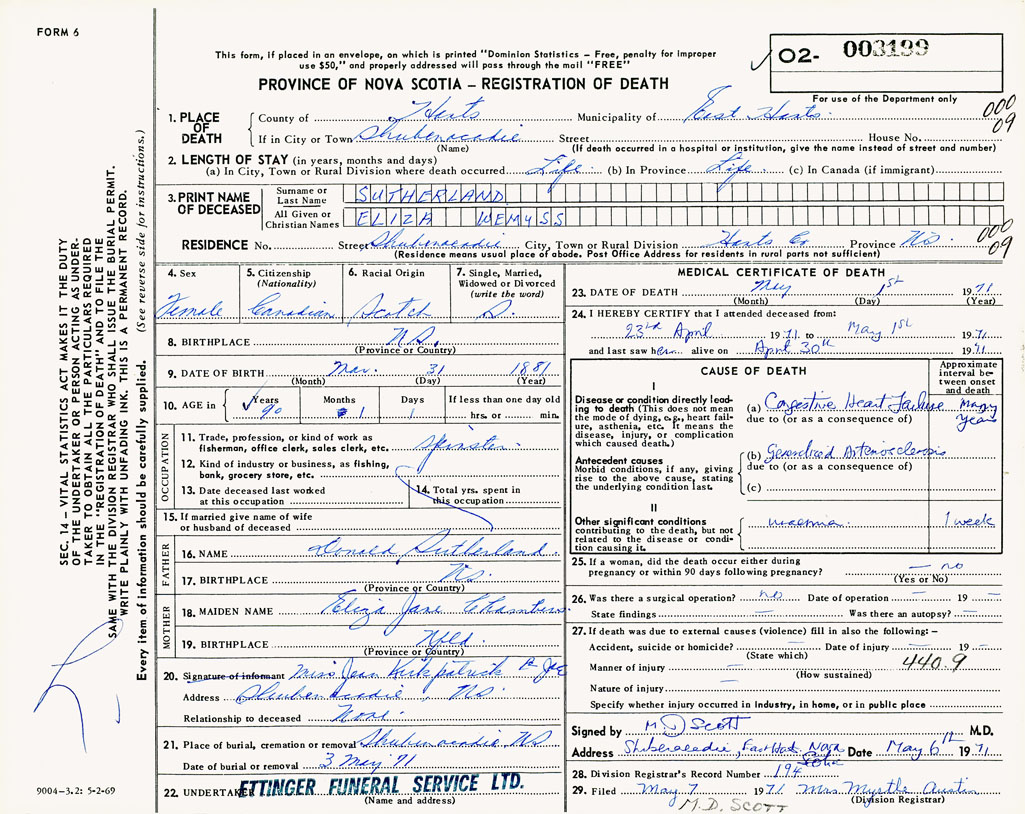 FORM 6
This form, if placed in an envelope, on which is printed "Dominion Statistics – Free, penalty for improper
use $50," and properly addressed will pass through the mail "FREE"
O2- 003199
PROVINCE OF NOVA SCOTIA – REGISTRATION OF DEATH
For use of the Department only
000
09
1. PLACE OF DEATH
County of Hants Municipality of East Hants.
If in City or Town Shubenacadie Street House No.
(Name) (If death occurred in a hospital or institution, give the name instead of street and number)
2. LENGTH OF STAY (in years, months and days)
(a) In City, Town or Rural Division where death occurred Life. (b) In Province Life. (c) In Canada (if immigrant)
3. PRINT NAME OF DECEASED
Surname or Last Name SUTHERLAND
All Given or Christian Names ELIZA WEMYSS
RESIDENCE No. Street Shubenacadie City, Town or Rural Division Hants Co Province NS
(Residence means usual place of abode. Post Office Address for residents in rural parts not sufficient)
000
09
4. Sex
Female
5. Citizenship
(Nationality)
Canadian
6. Racial Origin
Scotch
7. Single, Married,
Widowed or Divorced
(write the word)
S.
8. BIRTHPLACE N.S.
(Province or Country)
9. DATE OF BIRTH Mar. 31 1881
(Month) (Day) (Year)
10. AGE in Years Months Days If less than one day old
90 1 1 hrs. or min.
OCCUPATION
11. Trade, profession, or kind of work as
fisherman, office clerk, sales clerk, etc. Spinster
12. Kind of industry or business, as fishing,
bank, grocery store, etc.
13. Date deceased last worked
at this occupation
14. Total yrs. spent in
this occupation
15. If married give name of wife
or husband of deceased
FATHER
16. NAME Donald Sutherland.
17. BIRTHPLACE N.S.
(Province or Country)
MOTHER
18. MAIDEN NAME Eliza Jane Chambers
19. BIRTHPLACE Nfld.
(Province or Country)
20. Signature of informant Miss Jean Kirkpatrick
Address Shubenacadie, NS.
Relationship to deceased None.
21. Place of burial, cremation or removal Shubenacadie NS
Date of burial or removal 3 May '71
22. UNDERTAKER ETTINGER FUNERAL SERVICE LTD.
(Name and address)
MEDICAL CERTIFICATE OF DEATH
23. DATE OF DEATH May 1st 1971
(Month) (Day) (Year)
24. I HEREBY CERTIFY that I attended deceased from:
23rd April 1971 to May 1st 1971
and last saw her alive on April 30th 1971
CAUSE OF DEATH
Approximate
interval be-
tween onset
and death
I
Disease or condition directly lead-
ing to death (This does not mean
the mode of dying, e.g., heart fail-
ure, asthenia, etc. It means the
disease, injury, or complication
which caused death.)
(a) Congestive Heart Failure
due to (or as a consequence of)
Many
Years
Antecedent causes
Morbid conditions, if any, giving
rise to the above cause, stating
the underlying condition last.
(b) Generalized Arteriosclerosis
due to (or as a consequence of)
(c)
II
Other significant conditions
contributing to the death, but not
related to the disease or condi-
tion causing it.
uraemia. 1 week
25. If a woman, did the death occur either during
pregnancy or within 90 days following pregnancy? – no
(Yes or No)
26. Was there a surgical operation? no Date of operation – 19 –
State findings – Was there an autopsy? –
27. If death was due to external causes (violence) fill in also the following:–
Accident, suicide or homicide? – Date of injury – 19 –
(State which)
Manner of injury – 440.9
(How sustained)
Nature of injury –
Specify whether injury occurred in industry, in home, or in public place –
Signed by M D Scott M.D.
Address Shubenacadie, East Hants, Nova Scotia Date May 6th 1971
28. Division Registrar's Record Number 194
29. Filed May 7 1971 Mrs Myrtle Austin
(Division Registrar)
M.D. SCOTT
SEC. 14 – VITAL STATISTICS ACT MAKES IT THE DUTY
OF THE UNDERTAKER OR PERSON ACTING AS UNDER-
TAKER TO OBTAIN ALL THE PARTICULARS REQUIRED
IN THE "REGISTRATION OF DEATH" AND TO FILE THE
SAME WITH THE DIVISION REGISTRAR WHO SHALL ISSUE THE BURIAL PERMIT.
WRITE PLAINLY WITH UNFADING INK. THIS IS A PERMANENT RECORD.
Every item of information should be carefully supplied. (See reverse side for instructions.)
9004–3.2: 5-2-69